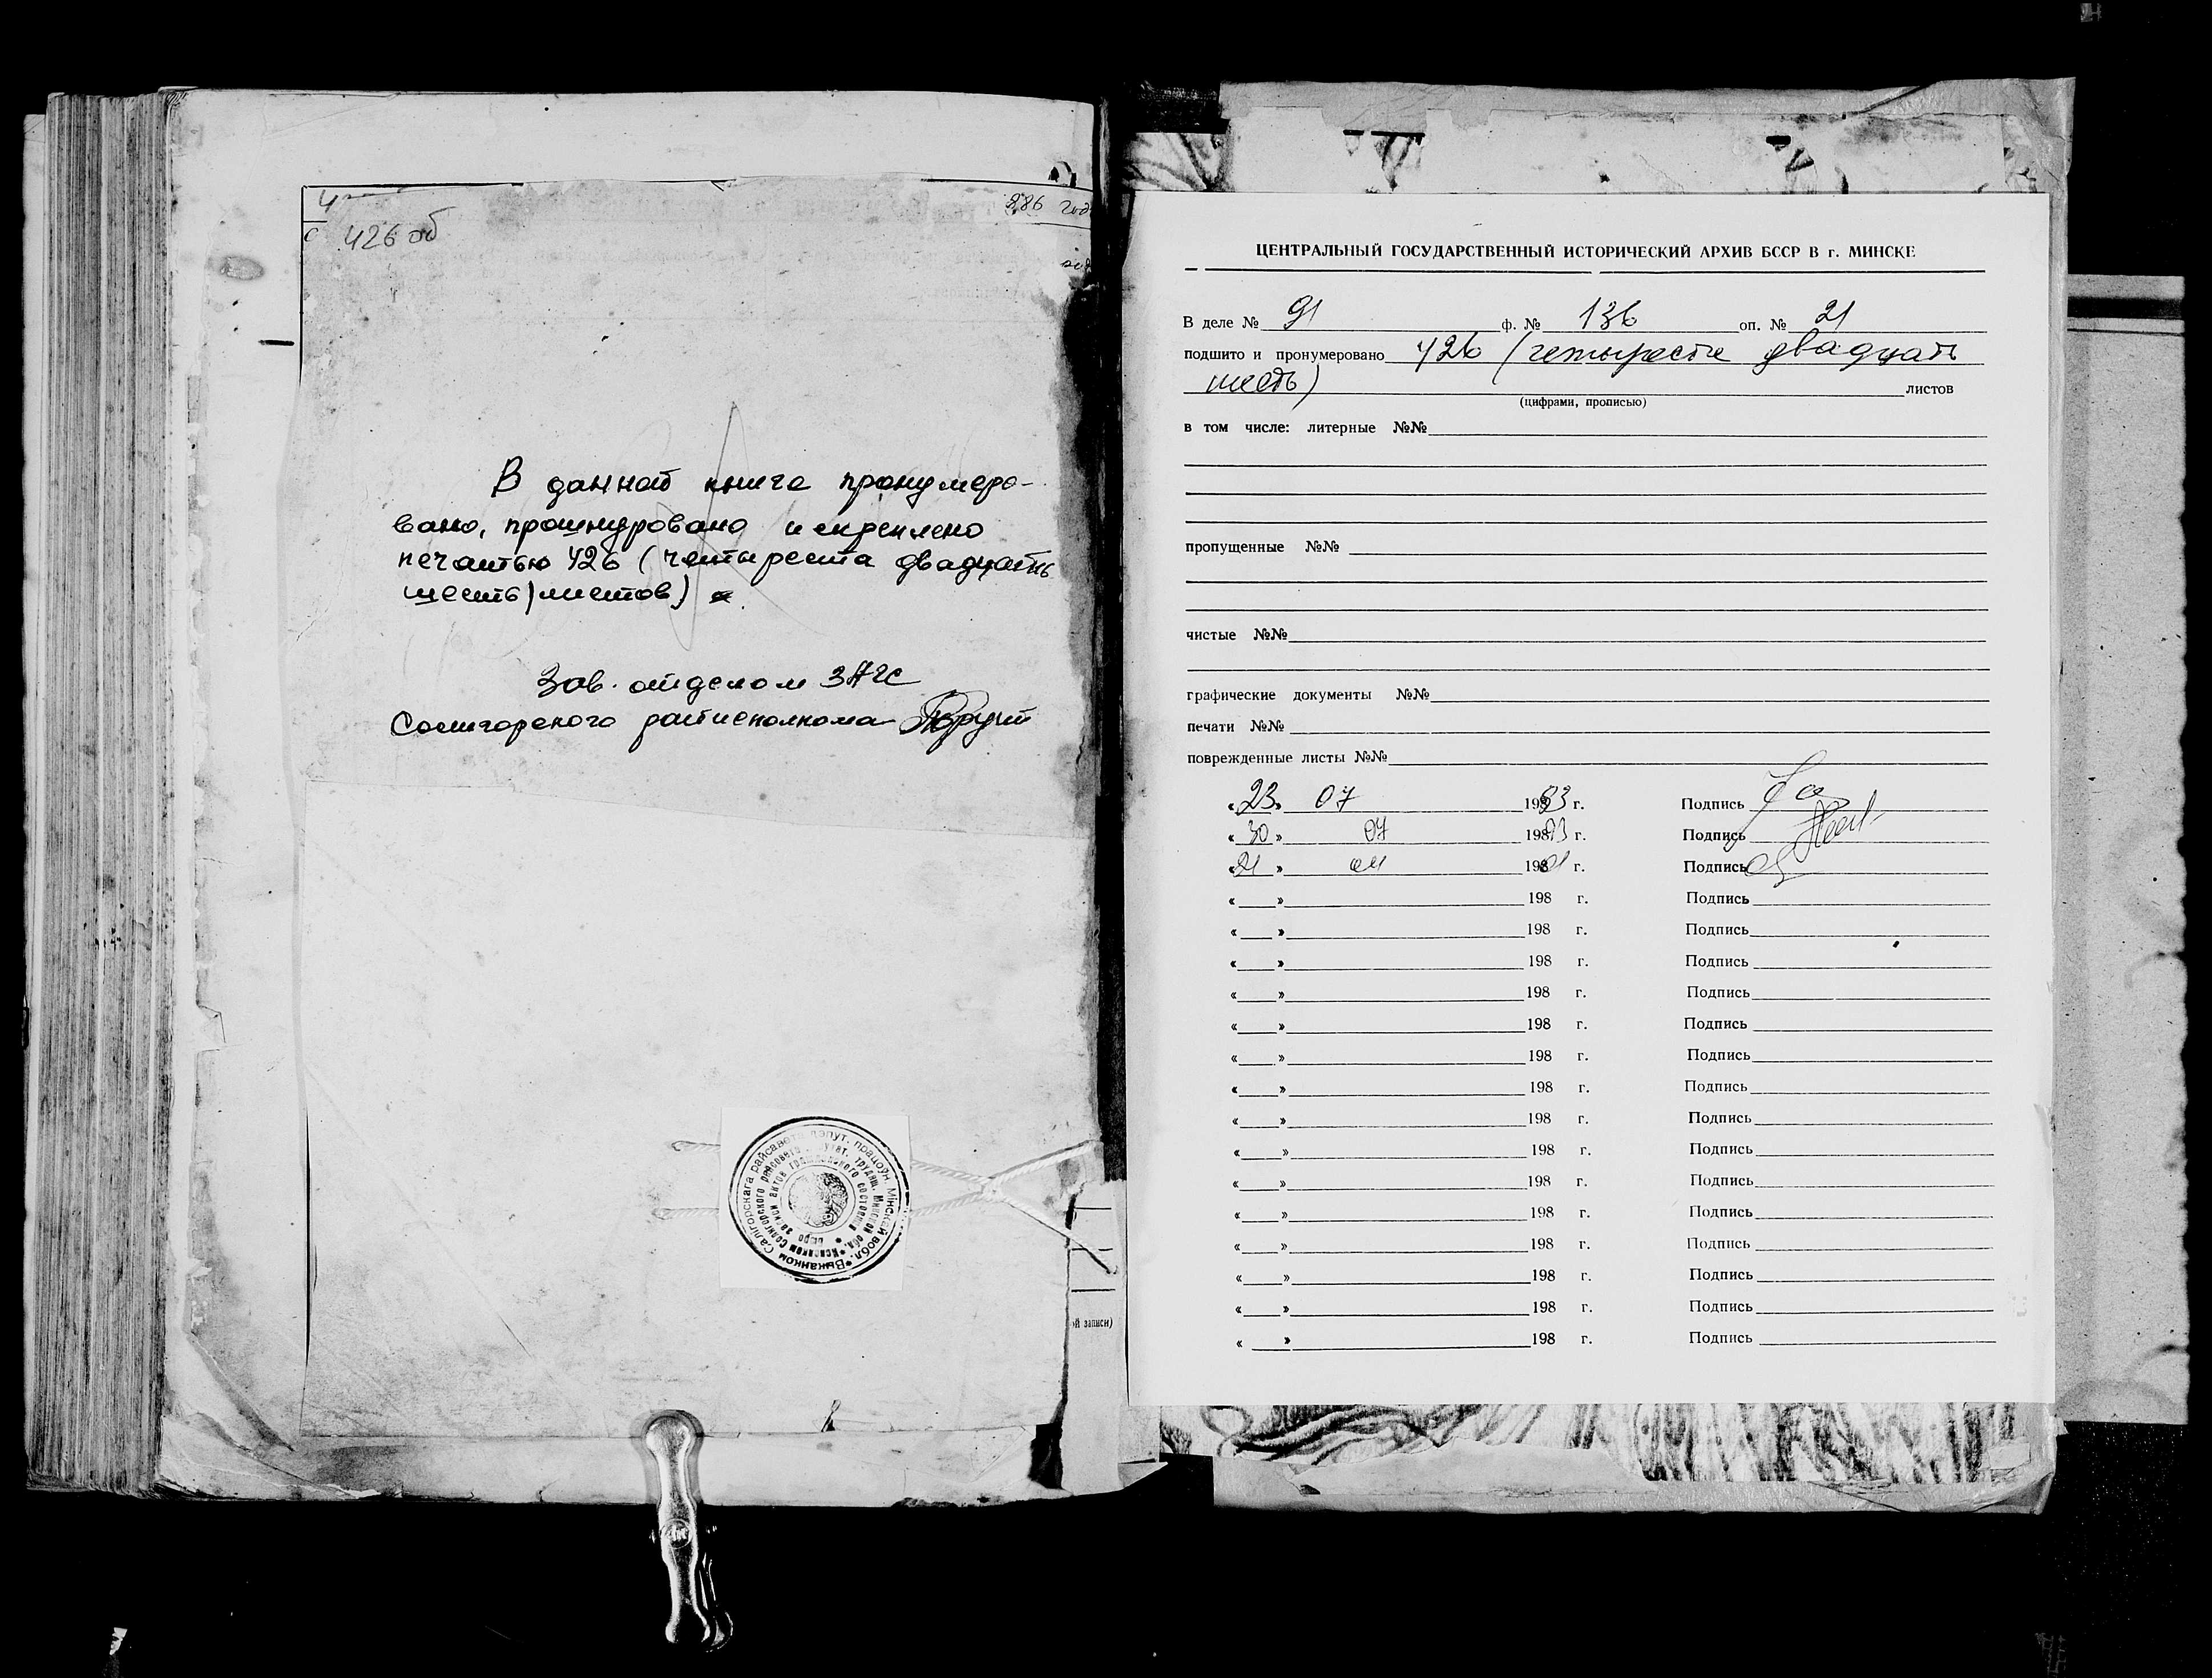 426 об
886 год
В данной книге пронумеро-
вано, прошнуровано и скреплено
печатью 426 (четыреста двадцать
шесть) листов)
Зав. отделом ЗАГС
Солигорского райисполкома
Выканком Салігорскага райсавета дэпут. працоўн. Мінскай вобл.
Исполком Солигорского райсовета депутат. трудящ. Минской обл.
бюро записи актов гражданского состояния
ой записи)
ЦЕНТРАЛЬНЫЙ ГОСУДАРСТВЕННЫЙ ИСТОРИЧЕСКИЙ АРХИВ БССР В г. МИНСКЕ
В деле № 91 ф. № 136 оп. № 21
подшито и пронумеровано 426 (четыреста двадцать
шесть) листов
(цифрами, прописью)
в том числе: литерные №№
пропущенные №№
чистые №№
графические документы №№
печати №№
поврежденные листы №№
«23» 07 1993 г. Подпись
«30» 07 1993 г. Подпись
«21» 04 198 г. Подпись
« » 198 г. Подпись
« » 198 г. Подпись
« » 198 г. Подпись
« » 198 г. Подпись
« » 198 г. Подпись
« » 198 г. Подпись
« » 198 г. Подпись
« » 198 г. Подпись
« » 198 г. Подпись
« » 198 г. Подпись
« » 198 г. Подпись
« » 198 г. Подпись
« » 198 г. Подпись
« » 198 г. Подпись
« » 198 г. Подпись